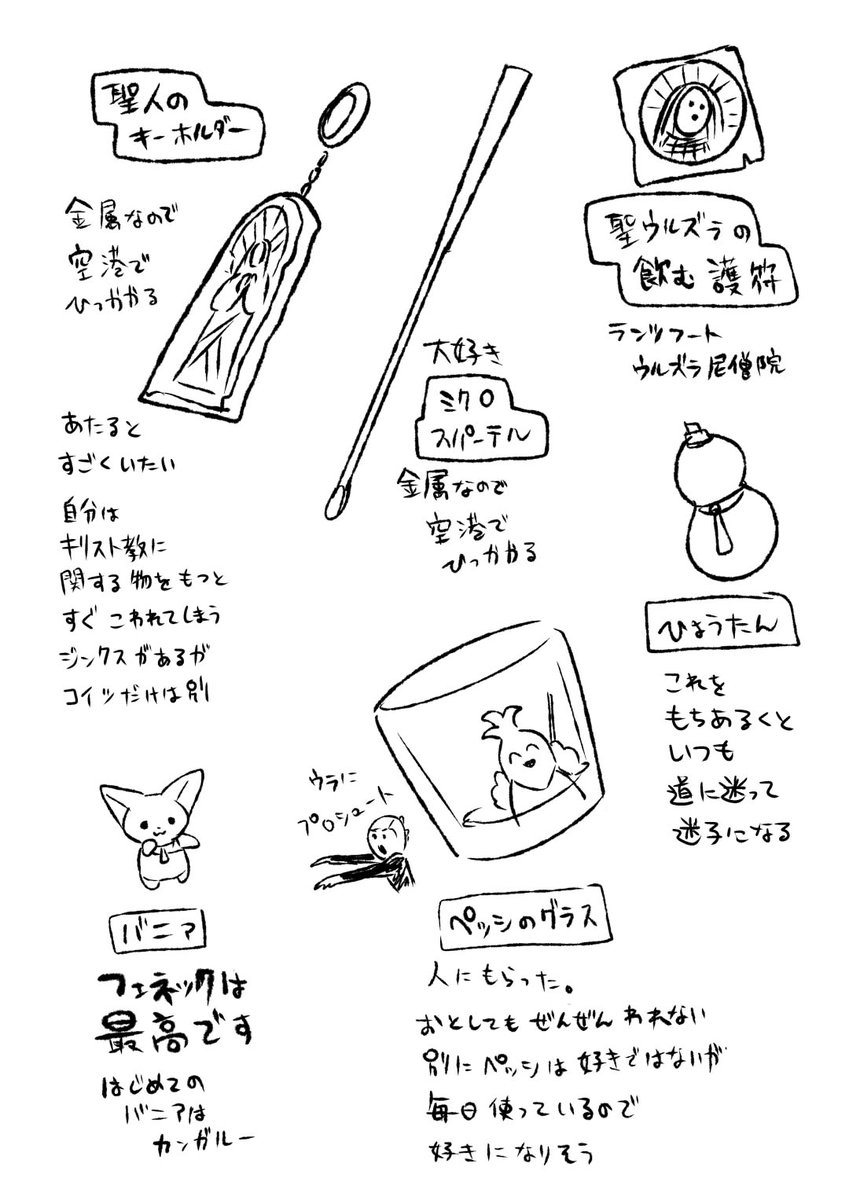 聖人の
キーホルダー
金属なので
空港で
ひっかかる
あたると
すごくいたい
自分は
キリスト教に
関する物をもつと
すぐこわれてしまう
ジンクスがあるが
コイツだけは別
大好き
ミクロ
スパーテル
金属なので
空港で
ひっかかる
聖ウルズラの
飲む護符
ランツフート
ウルズラ尼僧院
ひょうたん
これを
もちあるくと
いつも
道に迷って
迷子になる
バニア
フェネックは
最高です
はじめての
バニアは
カンガルー
ウラに
プロシュート
ペッシのグラス
人にもらった。
おとしてもぜんぜんわれない
別にペッシは好きではないが
毎日使っているので
好きになりそう